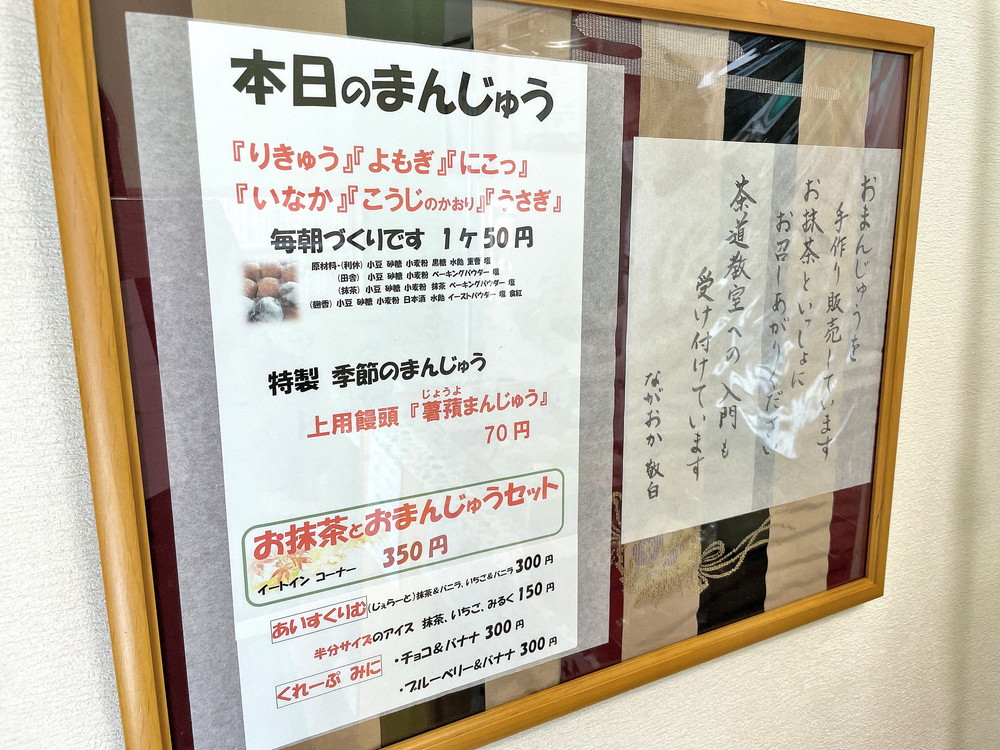 本日のまんじゅう
『りきゅう』『よもぎ』『にこっ』
『いなか』『こうじのかおり』『うさぎ』
毎朝づくりです 1ケ50円
原材料・(利休) 小豆 砂糖 小麦粉 黒糖 水飴 重曹 塩
(田舎) 小豆 砂糖 小麦粉 ベーキングパウダー 塩
(抹茶) 小豆 砂糖 小麦粉 抹茶 ベーキングパウダー 塩
(麹香) 小豆 砂糖 小麦粉 日本酒 水飴 イーストパウダー 塩 食紅
特製 季節のまんじゅう
じょうよ
上用饅頭『薯蕷まんじゅう』
70円
お抹茶とおまんじゅうセット
350円
イートイン コーナー
あいすくりむ(じぇらーと)抹茶&バニラ、いちご&バニラ 300円
半分サイズのアイス 抹茶、いちご、みるく 150円
くれーぷ みに ・チョコ&バナナ 300円
・ブルーベリー&バナナ 300円
おまんじゅうを
手作り販売しています
お抹茶といっしょに
お召しあがりください
茶道教室への入門も
受け付けています
ながおか 敬白